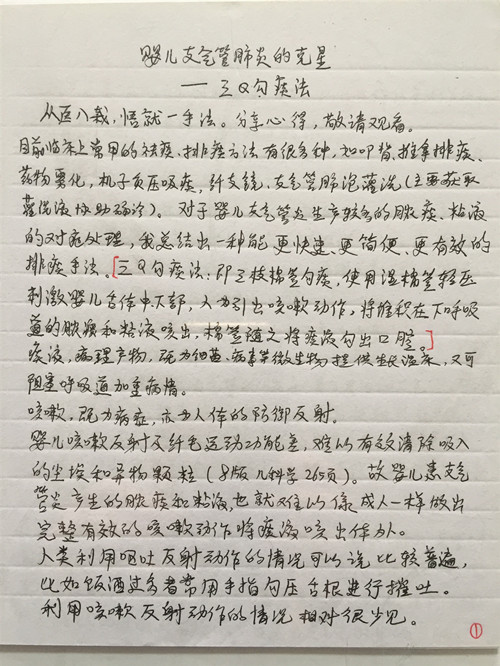 婴儿支气管肺炎的克星
— 三Q勾痰法
从医八载，悟就一手法。分享心得，敬请观看。
目前临床上常用的祛痰、排痰方法有很多种，如叩背、推拿排痰、
药物雾化，机子负压吸痰，纤支镜，支气管肺泡灌洗(主要获取
灌洗液协助确诊)。对于婴儿支气管炎生产较多的脓痰、粘液
的对症处理，我总结出一种能更快速、更简便、更有效的
排痰手法。[三Q勾痰法：即三枝棉签勾痰，使用湿棉签轻压
刺激婴儿舌体中下部，人为引出咳嗽动作，将堆积在下呼吸
道的脓痰和粘液咳出，棉签随之将痰液勾出口腔。]
痰液，病理产物，既为细菌、病毒等微生物提供生长温床，又可
阻塞呼吸道加重病情。
咳嗽，既为病症，亦为人体的防御反射。
婴儿咳嗽反射及纤毛运动功能差，难以有效清除吸入
的尘埃和异物颗粒(8版儿科学265页)。故婴儿患支气
管炎产生的脓痰和粘液，也就难以像成人一样做出
完整有效的咳嗽动作将痰液咳出体外。
人类利用呕吐反射动作的情况可以说比较普遍，
比如饮酒过多者常用手指勾压舌根进行催吐。
利用咳嗽反射动作的情况相对很少见。
①